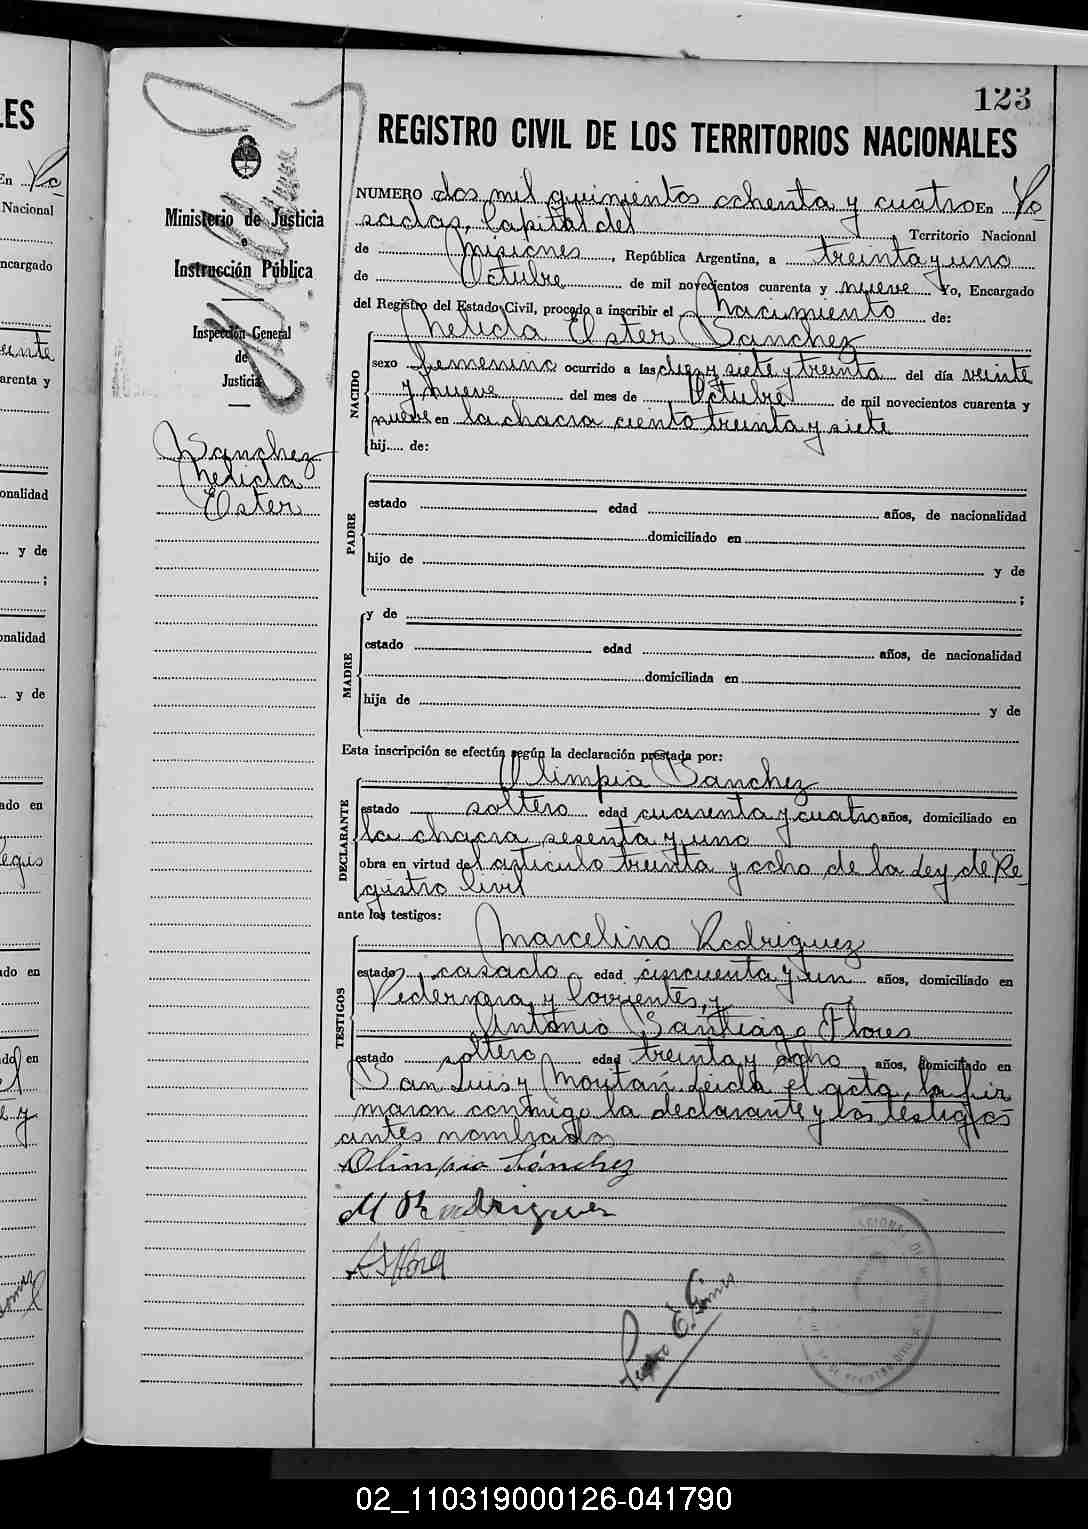 123
REGISTRO CIVIL DE LOS TERRITORIOS NACIONALES
Ministerio de Justicia
e
Instrucción Pública
Inspección General
de
Justicia
Sanchez
Nelida
Ester
NUMERO dos mil quinientos ochenta y cuatro En Po-
sadas, Capital del Territorio Nacional
de Misiones, República Argentina, a treinta y uno
de Octubre de mil novecientos cuarenta y nueve Yo, Encargado
del Registro del Estado Civil, procedo a inscribir el Nacimiento de:
NACIDO
Nelida Ester Sanchez
sexo femenino ocurrido a las diez y siete y treinta del día veinte
y nueve del mes de Octubre de mil novecientos cuarenta y
nueve en la chacra ciento treinta y siete
hij..... de:
PADRE
estado edad años, de nacionalidad
domiciliado en
hijo de y de
;
MADRE
y de
estado edad años, de nacionalidad
domiciliada en
hija de y de
Esta inscripción se efectúa según la declaración prestada por:
DECLARANTE
Olimpia Sanchez
estado soltero edad cuarenta y cuatro años, domiciliado en
la chacra sesenta y uno
obra en virtud del articulo treinta y ocho de la Ley de Re-
gistro Civil
ante los testigos:
TESTIGOS
Marcelino Rodriguez
estado casado edad cincuenta y un años, domiciliado en
Pedernera y Corrientes, y
Antonio Santiago Flores
estado soltero edad treinta y ocho años, domiciliado en
San Luis y Moritán. Leida el acta, la fir
maron conmigo la declarante y los testigos
antes nombrados
Olimpia Sánchez
M Rodrigues
Pedro E. Gomes
LES
En Po
Nacional
ncargado
arenta y
onalidad
y de
;
onalidad
y de
ado en
ado en
ado en
02_110319000126-041790